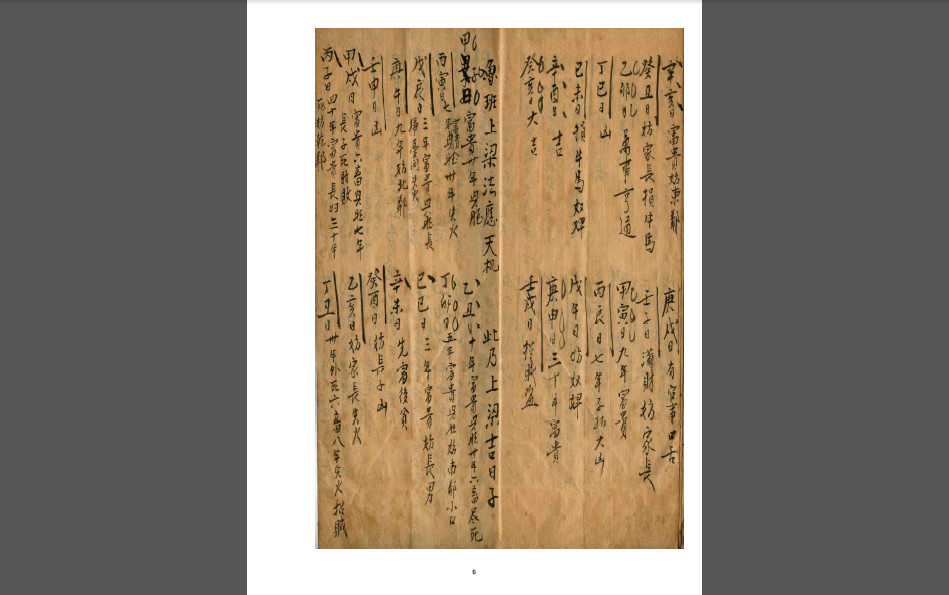 庚戌日有官事口舌
辛亥日富貴妨東鄰
壬子日滿財妨家長
癸丑日妨家長損牛馬
甲寅日九年富貴
乙卯日 亨通
丙辰日七年子孫大凶
丁巳日 凶
戊午日妨奴婢
己未日損牛馬奴婢
庚申日三十年富貴
辛酉日 吉
壬戌日招
癸亥日大吉
魯班上梁法應天机 此乃上梁吉日子
甲子日富貴廿年
乙丑 十年富貴 廿年六畜尽死
丙寅日七年 廿年失火
丁卯日五年富貴 妨南鄰小口
戊辰日三年富貴
己巳日三年富貴妨長男
庚午日九年妨北鄰
辛未日先富後貧
壬申日凶
癸酉日妨長子凶
甲戌日富貴六畜興旺七年長子死財敗
乙亥日妨家長失火
丙子日四十年富貴長妇三十年死妨北鄰
丁丑日卅年外死六畜八年失火招賊
6